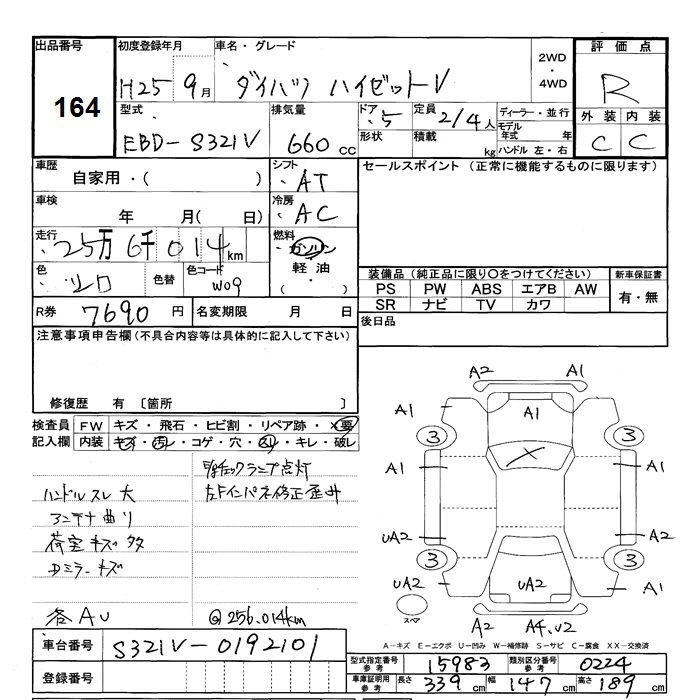 出品番号 初度登録年月 車名・グレード 2WD 評価点
164 H25 9月 ダイハツ ハイゼットV ・4WD R
型式 排気量 ドア 定員 ディーラー・並行 外装 内装
EBD-S321V 660cc ・5 2/4人 モデル年式 年 C C
形状 積載 kg ハンドル 左・右
車歴 シフト セールスポイント (正常に機能するものに限ります)
自家用・( ) ・AT
車検 冷房
年 月( 日) ・AC
走行 燃料
・25万6千014km ガソリン
色 色替 色コード 軽油 装備品 (純正品に限り○をつけてください) 新車保証書
・シロ W09 ・( ) PS PW ABS エアB AW 有・無
SR ナビ TV カワ
R券 7690円 名変期限 月 日 後日品
注意事項申告欄(不具合内容等は具体的に記入して下さい)
修復歴 有 〔箇所 〕
検査員 FW キズ・飛石・ヒビ割・リペア跡・×要
記入欄 内装 キズ・汚レ・コゲ・穴・スリ・キレ・破レ
チェックランプ点灯
ハンドルスレ 大 左Fインパネ修正歪み
アンテナ曲り
荷室キズ多
Dミラーキズ
各AU @256.014km
A2 A1
A1 A1 A1
3 3
A1 × A1
UA2 A2
3 3
UA2 UA2 A1
スペア A2 A4.U2
A-キズ E-エクボ U-凹み W-補修跡 S-サビ C-腐食 XX-交換済
車台番号 S321V-0192101
型式指定番号 参考 15983 類別区分番号 参考 0224
登録番号
車庫証明用 参考 長さ 339cm 幅 147cm 高さ 189cm